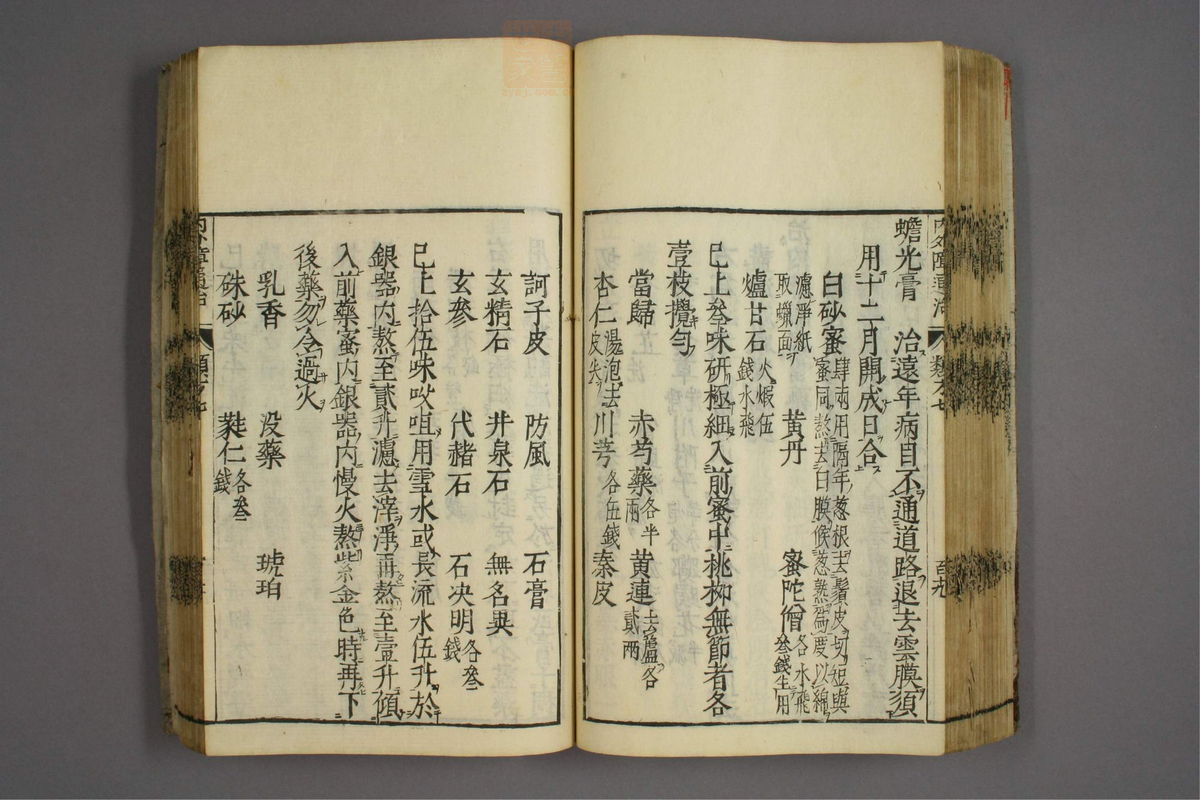 蟾光膏 治遠年病目不通道路退去雲膜須
用十二月開成日合
白砂蜜 肆兩用隔年葱根去鬚皮切短與
蜜同熬去白膜候葱熟爲度以綿
濾淨紙
取蠟面
黄丹 蜜陀僧 各水飛
叄錢生用
爐甘石 火煆伍
錢水飛
已上叄味研極細入前蜜中桃柳無節者各
壹枝攪勻
當歸 赤芍藥 各半
兩 黄連 去蘆各
貳兩
杏仁 湯泡去
皮尖 川芎 各伍錢 秦皮
訶子皮 防風 石膏
玄精石 井泉石 無名異
玄參 代赭石 石决明 各叄
錢
已上拾伍味㕮咀用雪水或長流水伍升於
銀器内熬至貳升濾去滓淨再熬至壹升傾
入前藥蜜内銀器内慢火熬紫金色時再下
後藥勿令過火
乳香 没藥 琥珀
硃砂 蕤仁 各叄
錢